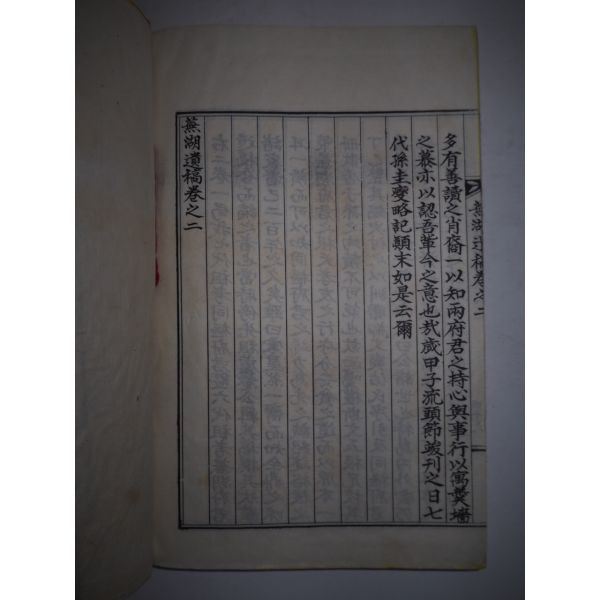 蕪湖遺稿卷之二
多有善讀之肖裔一以知兩府君之持心與事行以寓羹墻
之慕亦以認吾輩今之意也㢤歲甲子流頭節竣刊之日七
代孫圭燮略記顚末如是云爾
蕪湖遺稿卷之二